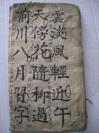 雲淡風輕近午
天傍花隨柳過
前川八月習字